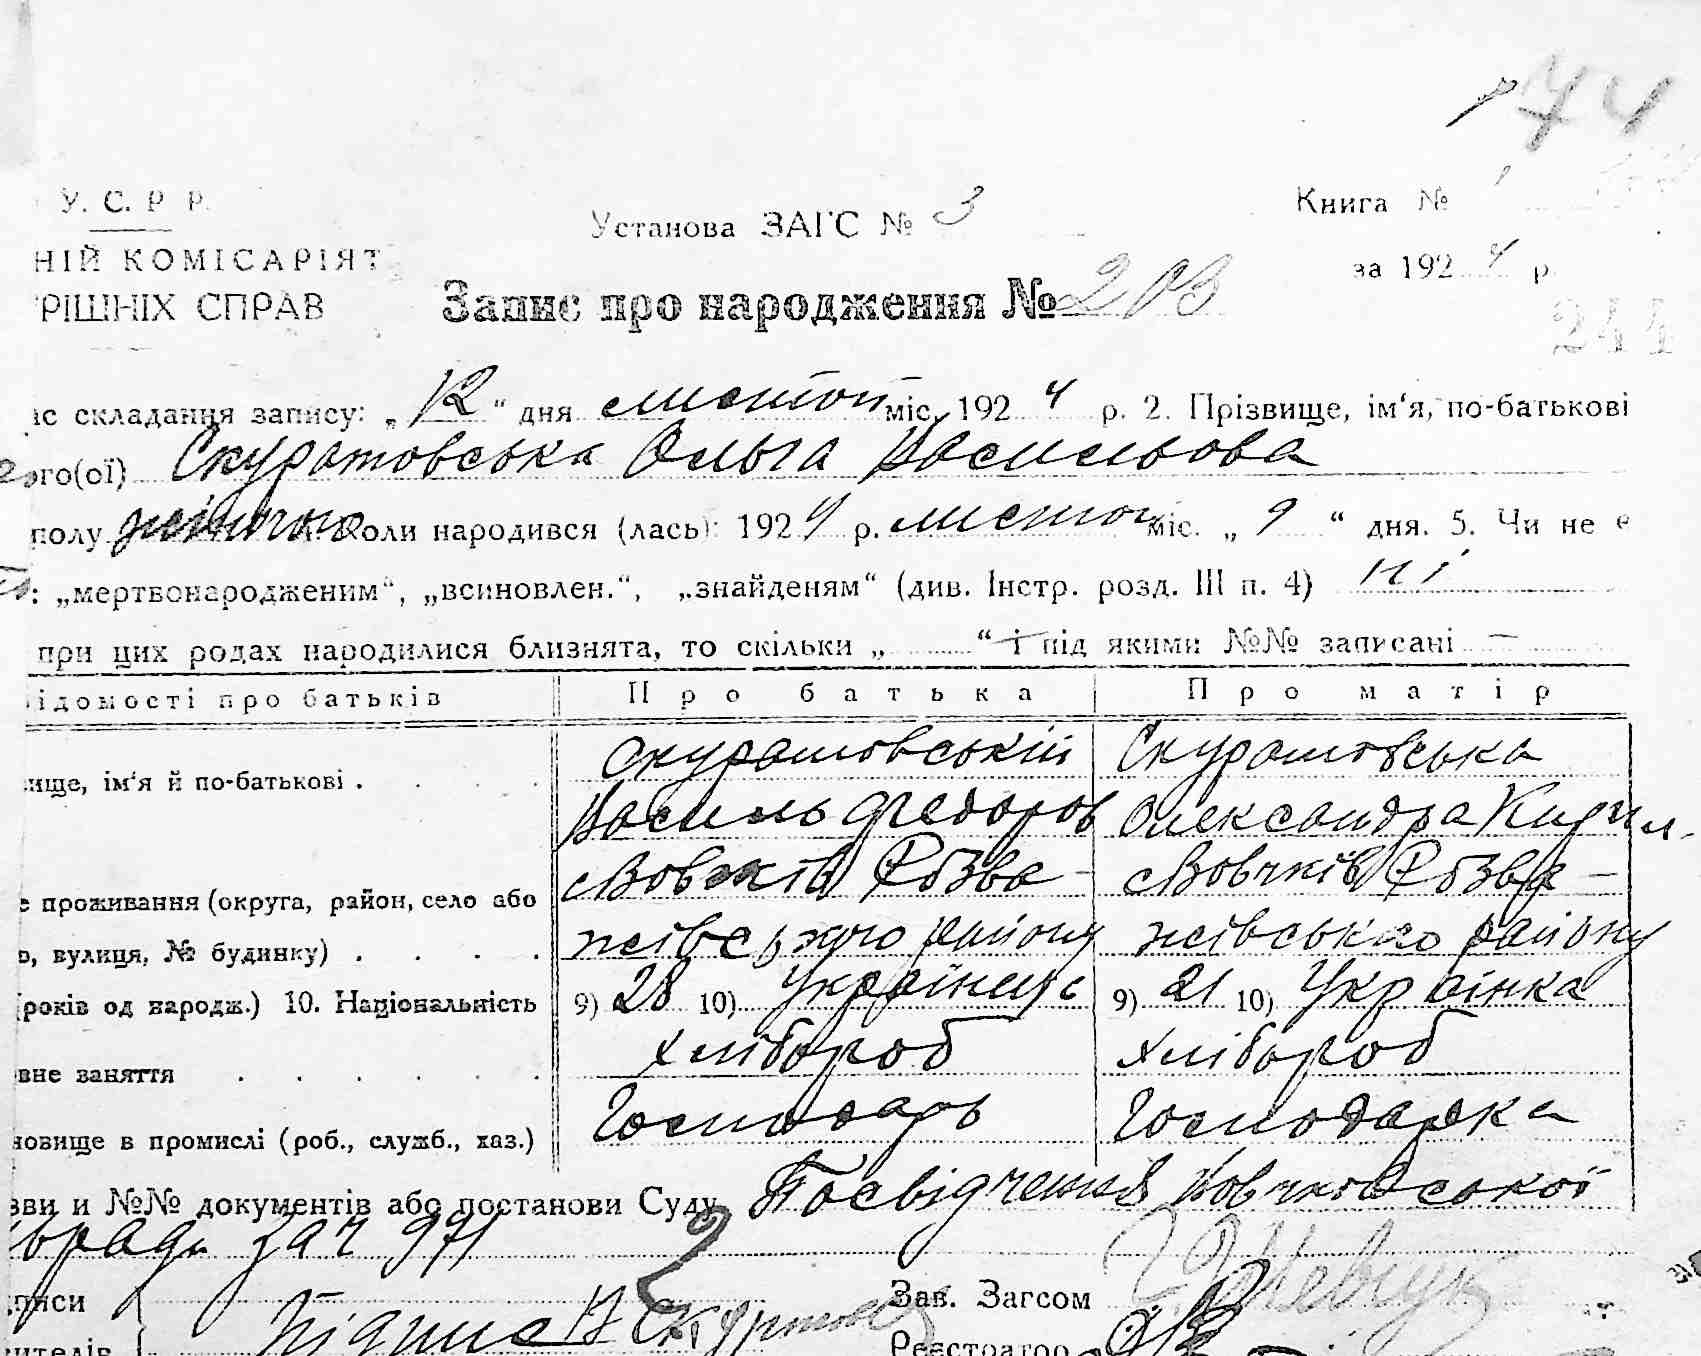 74
У. С. Р Р.
Установа ЗАГС № 3
Книга № 1
НІЙ КОМІСАРІЯТ
за 1924 р.
РІШНІХ СПРАВ
Запис про народження № 203
244
ас складання запису: „12“ дня листоп міс. 1924 р. 2. Прізвище, ім‘я, по-батькові
ого(ої) Скуратовська Ольга Васильова
полу жіночого Коли народився (лась): 1924 р. листоп міс. „9“ дня. 5. Чи не є
: „мертвонародженим“, „всиновлен.“, „знайденям“ (див. Інстр. розд. III п. 4) ні
при цих родах народилися близнята, то скільки „ “ і під якими №№ записані —
ідомості про батьків Про батька Про матір
Скуратовській Скуратовська
ище, ім‘я й по-батькові .
Василь Федоров Олександра Кирил.
Вовчків Розва- Вовчків Розва-
е проживання (округа, район, село або
жівського району жівського району
о, вулиця, № будинку) .
років од народж.) 10. Національність 9) 28 10) Українець 9) 21 10) Українка
Хлібороб Хлібороб
вне заняття
Господарь Господарка
новище в промислі (роб., служб., хаз.)
зви и №№ документів або постанови Суду Посвідчення Вовчковської
ьради за ч 971
писи Підпис В Скурат Зав. Загсом
ителів Реєстратор